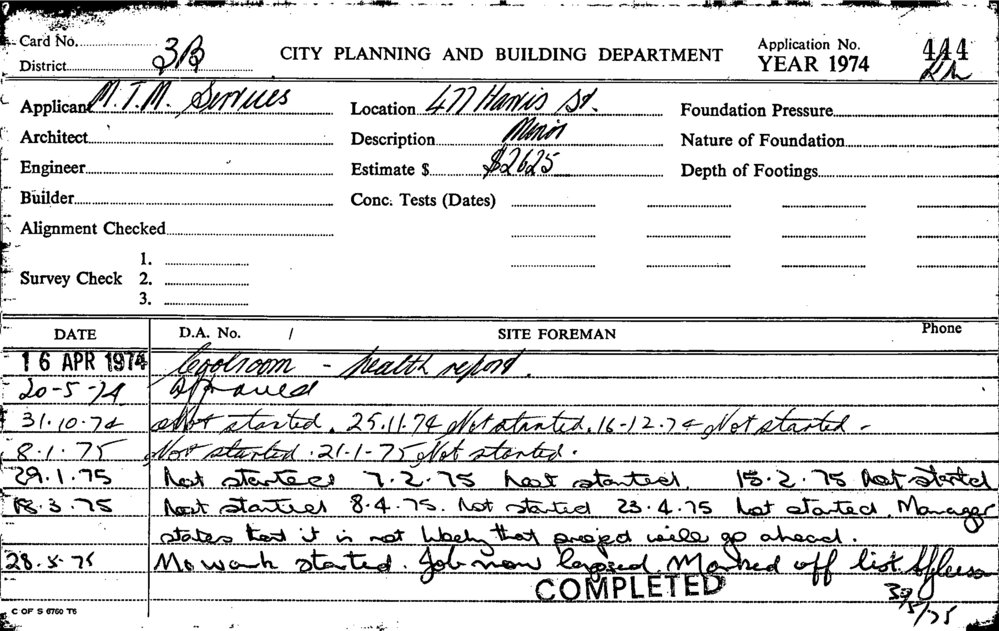 Card No.
District 3B
CITY PLANNING AND BUILDING DEPARTMENT
Application No. 444
YEAR 1974
Applicant M.T.M. Services
Location 477 Harris St.
Foundation Pressure
Architect
Description Minor
Nature of Foundation
Engineer
Estimate $ $2625
Depth of Footings
Builder
Conc. Tests (Dates)
Alignment Checked
Survey Check
1.
2.
3.
DATE D.A. No. / SITE FOREMAN Phone
16 APR 1974 Coolroom - health report.
20-5-74 Approved
31.10.74 Not started. 25.11.74 Not started. 16-12.74 Not started -
8.1.75 Not started. 21-1-75 Not started.
29.1.75 Not started 7.2.75 Not started. 15.2.75 Not started
18.3.75 Not started 8.4.75. Not started 23.4.75 Not started. Manager
states that it is not likely that project will go ahead.
28.5.75 No work started. Job now lapsed. Marked off list.
COMPLETED
30/5/75
C OF S 6760 T6